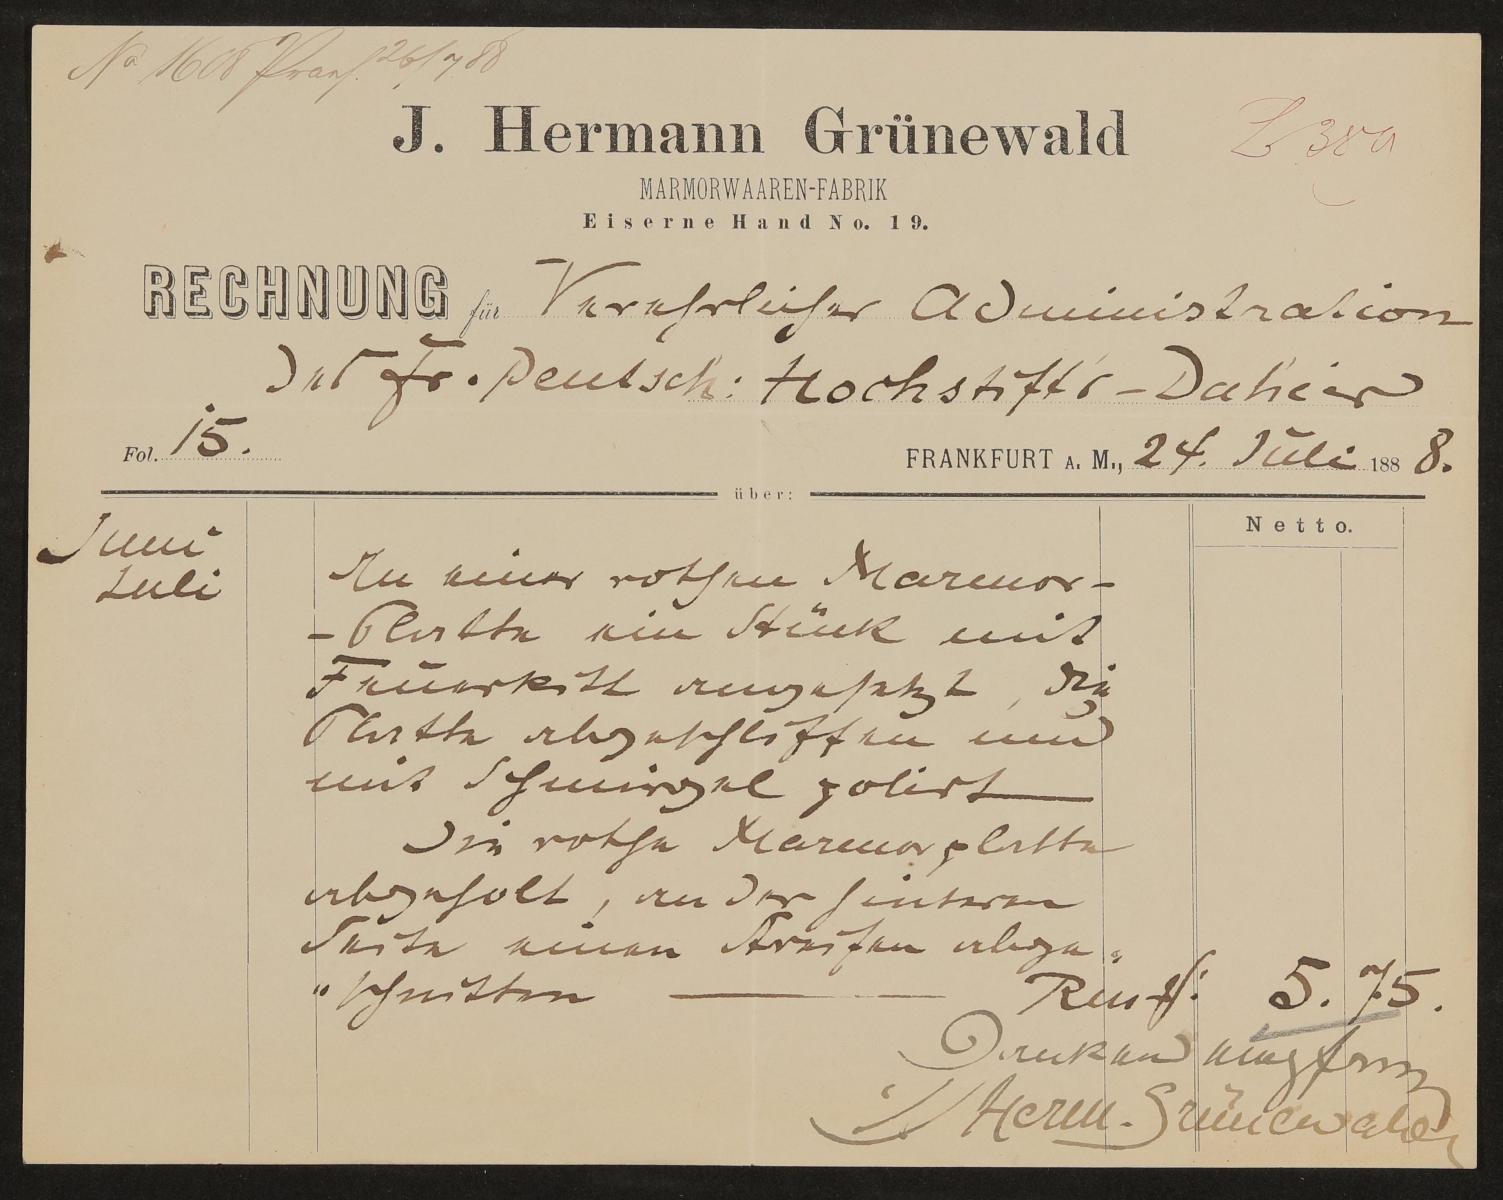 No 1608 Praes. 26/7 88
J. Hermann Grünewald
L 380
MARMORWAAREN-FABRIK
Eiserne Hand No. 19.
RECHNUNG für Verehrlicher Administration
des Fr. Deutsch: Hochstift's - Dahier
Fol. 15.
FRANKFURT A. M., 24. Juli 1888.
über:
Netto.
Juni
Juli
An einer rothen Marmor-
-Platte ein Stück mit
Feuerkitt angesetzt, die
Platte abgeschliffen und
mit Schmirgel polirt
Die rothe Marmorplatte
abgeholt, an der hinteren
Seite einen Streifen abge„
„schnitten
5. 75.
Dankend empfang
J Herm. Grünewald